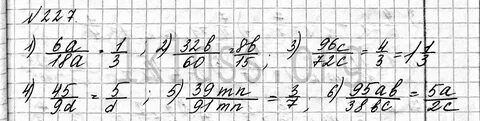 №227.
1) 6a/18a = 1/3 ; 2) 32b/60 = 8b/15 ; 3) 96c/72c = 4/3 = 1 1/3
4) 45/9d = 5/d ; 5) 39mn/91mn = 3/7 , 6) 95ab/38bc = 5a/2c